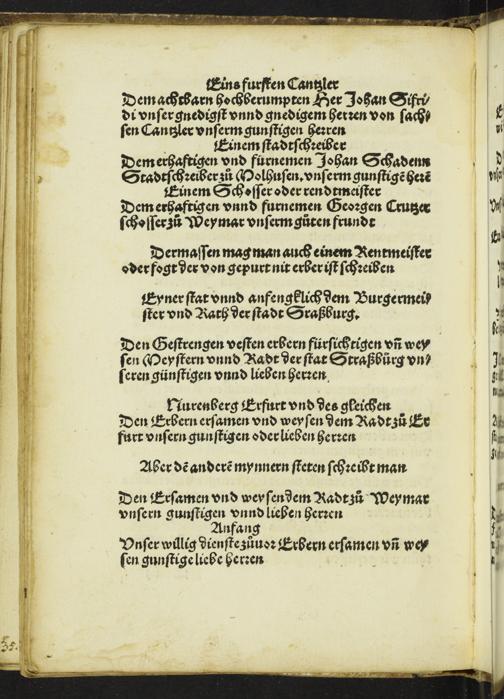 Eins fursten Cantzler
Dem achtbarn hochberumpten Her Johan Sifri⸗
di vnser gnedigst vnnd gnedigem herren von sach⸗
sen Cantzler vnserm gunstigen herren
Einem stadtschreiber
Dem erhaftigen vnd fürnemen Johan Schadenn
Stadtschreiber zů Molhusen, vnserm gunstigē herē
Einem Schosser oder rendtmeister
Dem erhaftigen vnnd furnemen Georgen Crutzer
schosser zů Weymar vnserm gůten frundt
Dermassen mag man auch einem Rentmeister
oder fogt der von gepurt nit erber ist schreiben
Eyner stat vnnd anfengklich dem Burgermei⸗
ster vnd Rath der stadt Straßburg.
Den Gestrengen vesten erbern fürsichtigen vn̄ wey⸗
sen Meystern vnnd Radt der stat Straßbůrg vn⸗
seren günstigen vnnd lieben herren
Nurenberg Erfurt vnd des gleichen
Den Erbern ersamen vnd weysen dem Radt zů Er
furt vnsern gunstigen oder lieben herren
Aber dē anderē mynnern steten schreibt man
Den Ersamen vnd weysen dem Radt zů Weymar
vnsern gunstigen vnnd lieben herren
Anfang
Vnser willig dienste zůuor Erbern ersamen vn̄ wey⸗
sen gunstige liebe herren
35.